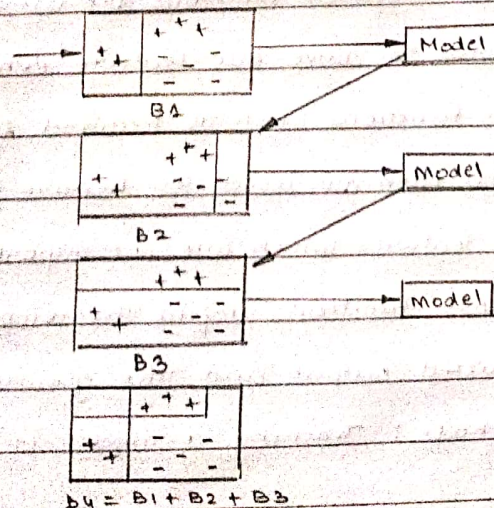 + + +
+ +
- - -
- -
Model
B1
+ + +
+ +
- - -
- -
Model
B2
+ + +
+ +
- - -
- -
Model
B3
+ + +
+ +
- - -
- -
B4 = B1 + B2 + B3